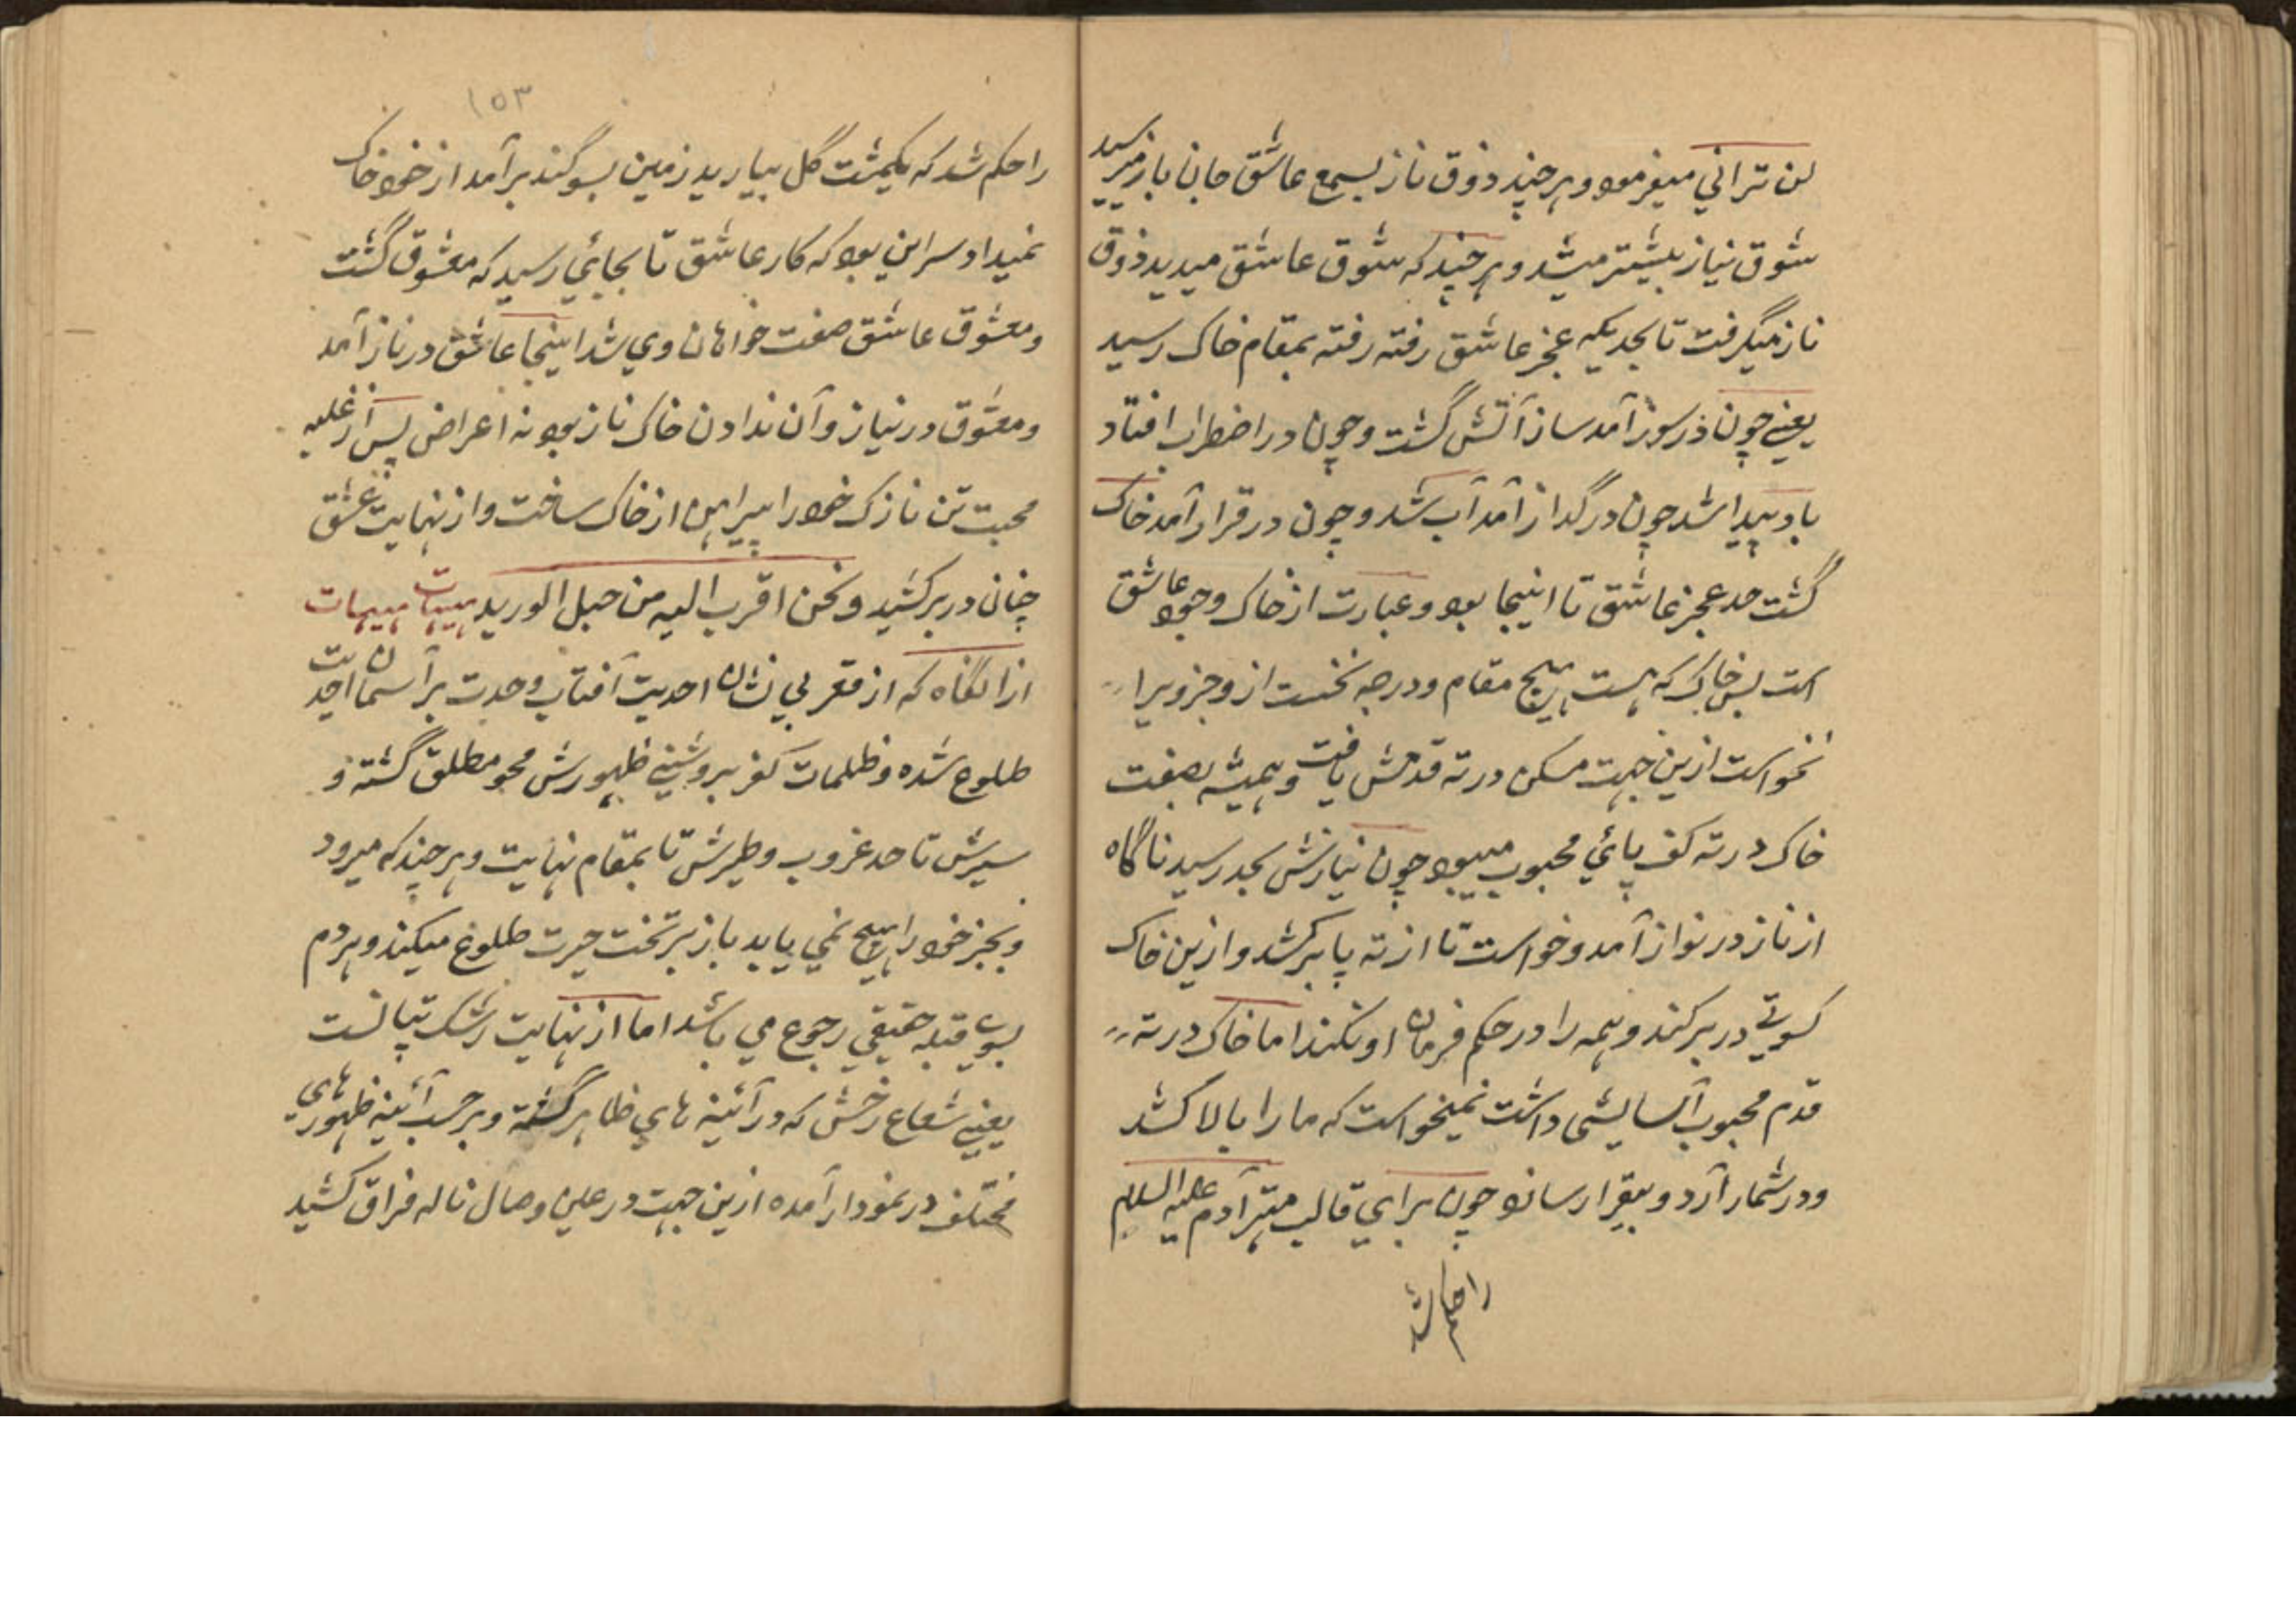 لن تراني ميفرمود و هر چند ذوق ناز بسمع عاشق جان باز ميرسيد
شوق نياز بيشتر ميشد و هر چند كه شوق عاشق ميديد ذوق
ناز ميگرفت تا بحديكه عجز عاشق رفته رفته بمقام خاك رسيد
يعني چون در سوز آمد ساز آتش گشت و چون در اضطراب افتاد
باد پيدا شد چون در گداز آمد آب شد و چون در قرار آمد خاك
گشت حد عجز عاشق تا اينجا بود و عبارت از خاك وجود عاشق
است پس خاك كه هست هيچ مقام و درجه نخست از و جز ويرا
نخواست ازين جهت مسكن در ته قدمش يافت و هميشه بصفت
خاك در ته كف پائي محبوب ميبود چون نيازش بحد رسيد ناگاه
از ناز در نواز آمد و خواست تا از ته پا بركشد و ازين خاك
كسوتي در بر كند و همه را در حكم فرمان او كند اما خاك در ته
قدم محبوب آسايشي داشت نميخواست كه ما را بالا كشد
و در شمار آرد و بيقرار رساند چون براي قالب مهتر آدم عليه السلام
را حكم شد
١٥٣
را حكم شد كه يكمشت گل بياريد زمين بسوگند برآمد از خود خاك
نميداد سر اين بود كه كار عاشق تا بجائي رسيد كه معشوق گشت
و معشوق عاشق صفت خواهان وي شد اينجا عاشق در ناز آمد
و معشوق در نياز و آن ندادن خاك ناز بود نه اعراض پس از غلبه
محبت تن نازك خود را پيراهن از خاك ساخت و از نهايت عشق
چنان در بر كشيد و نحن اقرب اليه من حبل الوريد هيهات هيهات
از آنگاه كه از مقر بي نشان احديت آفتاب وحدت بر آسمان احديت
طلوع شده و ظلمات كفر بروشني ظهورش محو مطلق گشته و
سيرش تا حد غروب و طيرش تا بمقام نهايت و هر چند كه ميرود
و بجز خود را هيچ نمي يابد باز بر تخت حيرت طلوع ميكند و هر دم
بسوي قبله حقيقي رجوع مي باشد اما از نهايت رشك تپانست
يعني شعاع رخش كه در آئينه هاي ظاهر گشته و بر حسب آئينه ظهورهاي
مختلف در نمودار آمده ازين جهت در عين وصال ناله فراق كشيد